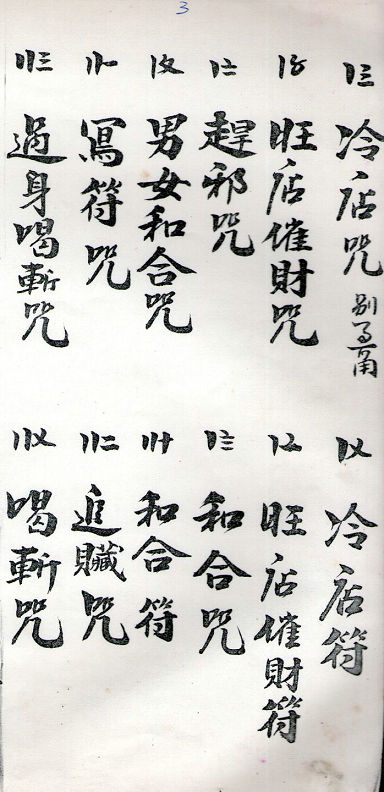 3
〡三
冷店咒
〡〤
冷店符
〡〥
旺店催財咒
〡〦
旺店催財符
〡〧
趕邪咒
〡〨
和合咒
〡〩
男女和合咒
〢十
和合符
〢一
寫符咒
〢二
追贓咒
〢三
過身喝斬咒
〢〤
喝斬咒